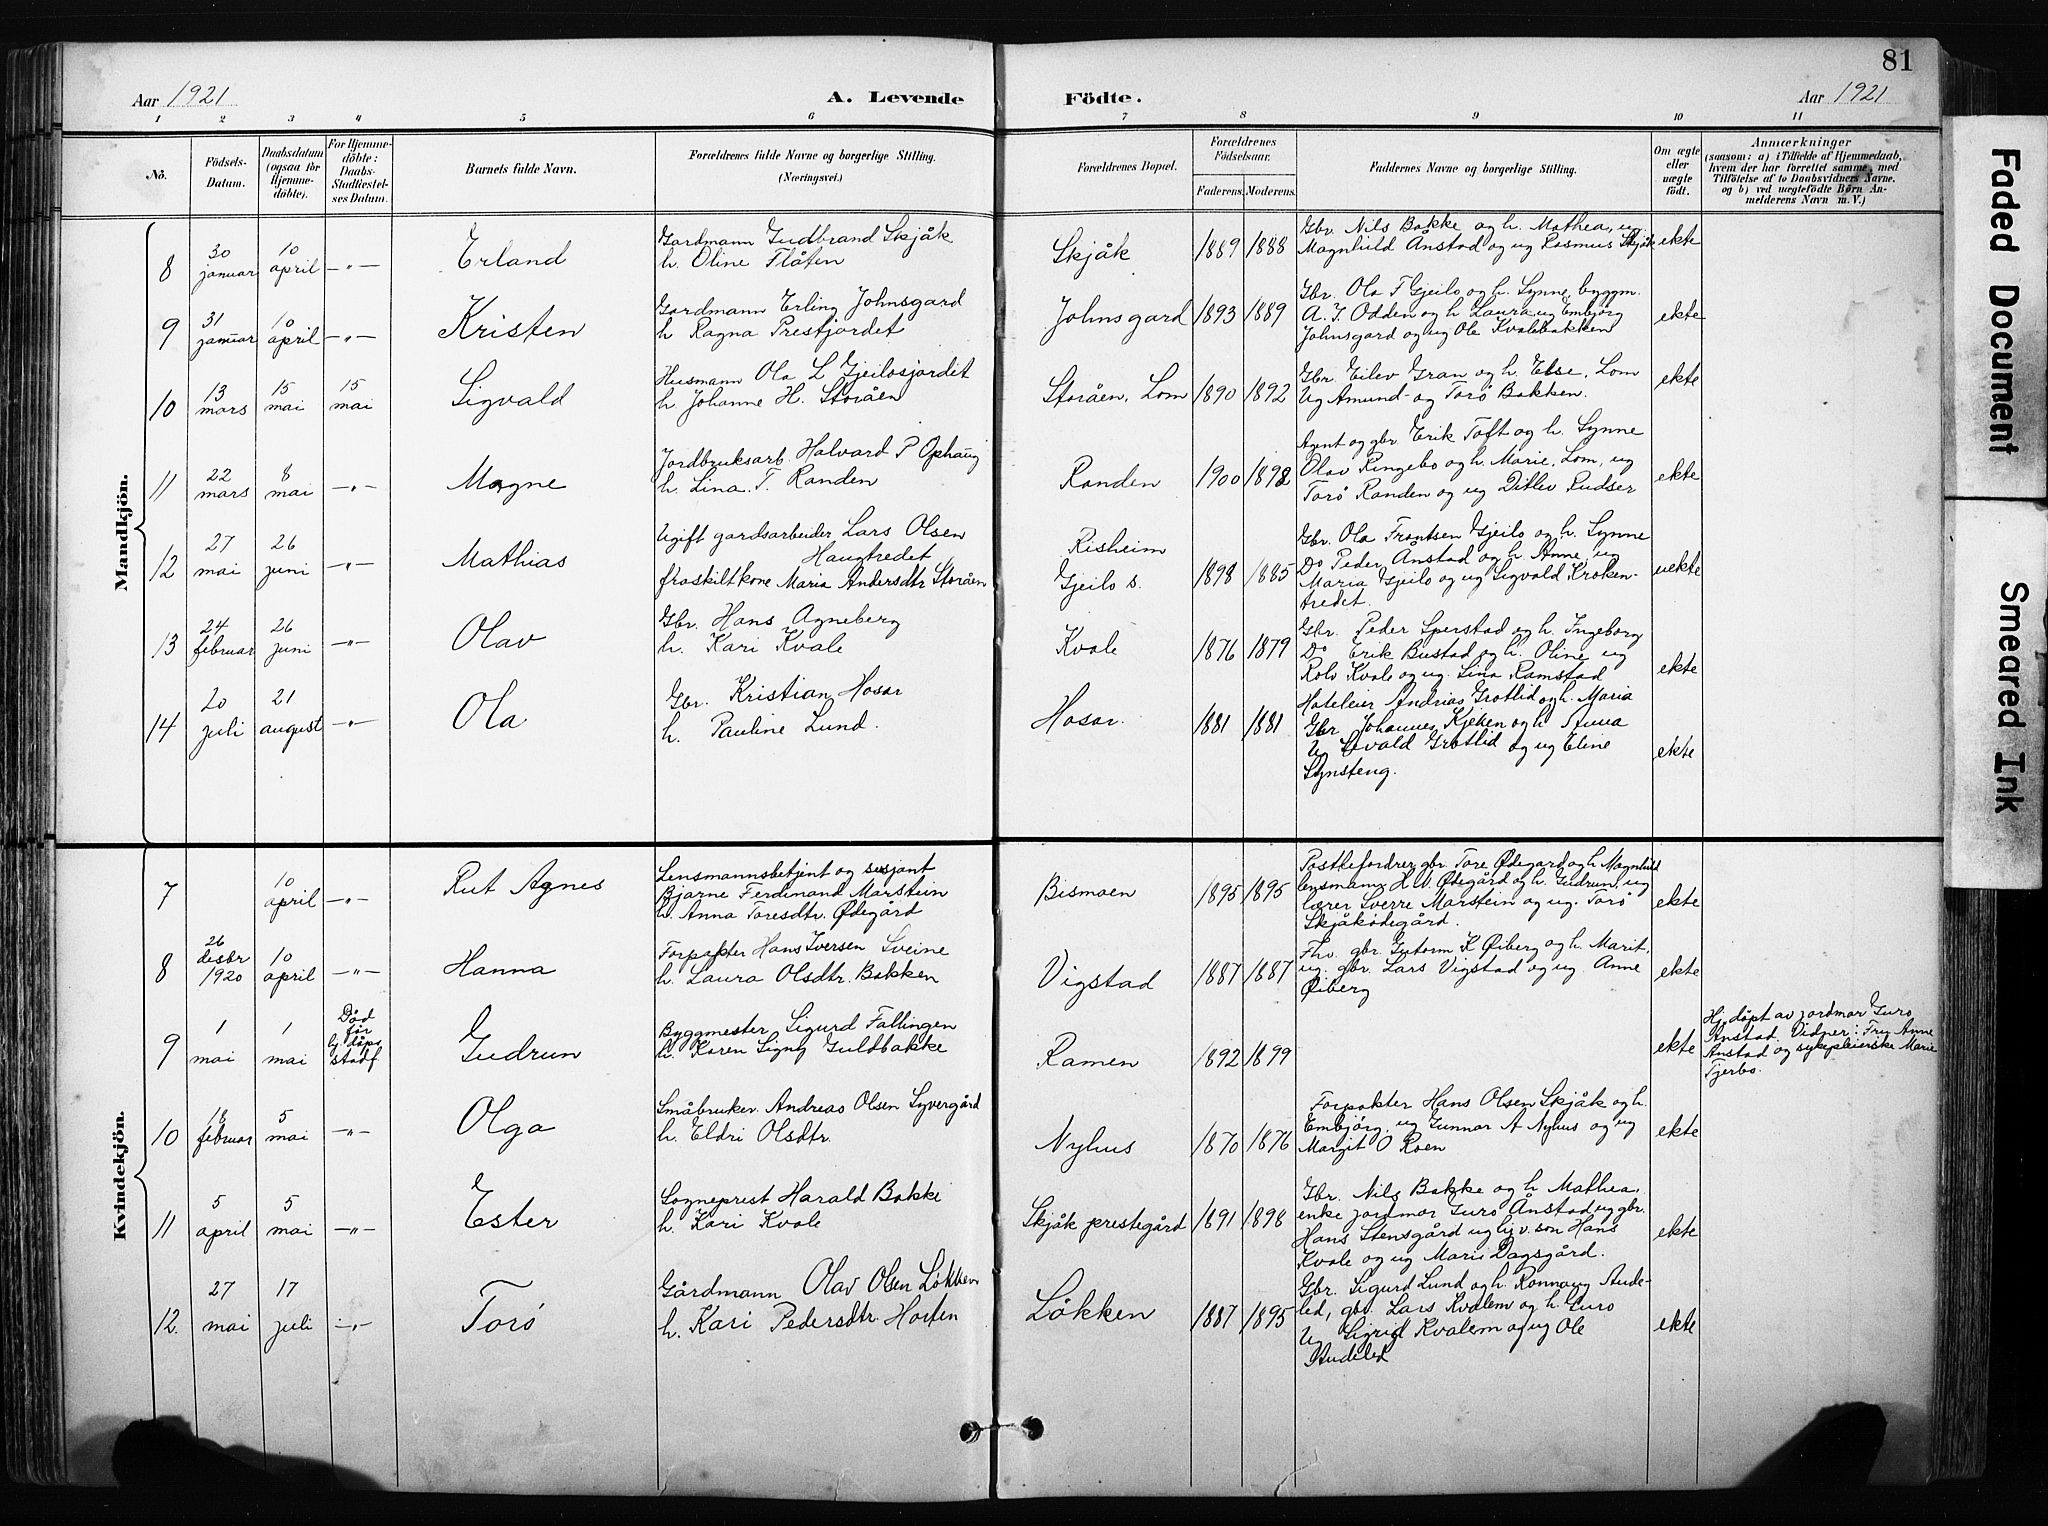 81
Aar 1921
A. Levende Födte.
Aar 1921
1 2 3 4 5 6 7 8 9 10 11
Nö.
Födsels-Datum.
Daabsdatum (ogsaa for Hjemme-döbte).
For Hjemme-döbte: Daabs-Stadfæstelses Datum.
Barnets fulde Navn.
Forældrenes fulde Navne og borgerlige Stilling. (Næringsvei.)
Forældrenes Bopæl.
Forældrenes Födselsaar.
Faderens. Moderens.
Faddernes Navne og borgerlige Stilling.
Om ægte eller uægte födt.
Anmærkninger
(saasom: a) i Tilfælde af Hjemmedaab, hvem der har forrettet samme, med Tilföielse af to Daabsvidners Navne. og b) ved uægtefödte Börn Anmelderens Navn m. V.)
Mandkjön.
8 30 januar 10 april -"- Erland
Gardmann Gudbrand Skjåk
h. Oline Flåten
Skjåk 1889 1888
Gbr. Nils Bakke og h. Mathea, ug.
Magnhild Ånstad og ug Rasmus Skjåk
ekte
9 31 januar 10 april -"- Kristen
Gardmann Erling Johnsgard
h Ragna Prestjordet
Johnsgard 1893 1889
Gbr. Ola F Gjeilo og h. Synne, byggm.
A. I. Odden og h Laura ug Embjørg
Johnsgard og ug Ole Kvalebakken
ekte
10 13 mars 15 mai 15 mai Sigvald
Husmann Ola L Gjeilosjordet
h. Johanne H. Storåen
Storåen, Lom 1890 1892
Gbr Eilev Gran og h. Else, Lom
Ug Amund og Torø Bakken.
ekte
11 22 mars 8 mai -"- Magne
Jordbruksarb. Halvard P Ophaug
h. Lina T. Randen
Randen 1900 1898
Agent og gbr Erik Toft og h. Synne
Olav Ringebo og h. Marie, Lom, ug
Torø Randen og ug Ditlev Rudser
ekte
12 27 mai 26 juni -"- Mathias
Ugift gardsarbeider Lars Olsen
Haugtredet
fraskilt kone Maria Andersdtr Storåen
Risheim
Gjeilo s. 1898 1885
Gbr. Ola Frantsen Gjeilo og h. Synne
Do Peder Ånstad og h Anne, ug
Maria Gjeilo og ug Sigvald Kroken-
tredet.
uekte
13 24 februar 26 juni -"- Olav
Gbr. Hans Agneberg
h. Kari Kvale
Kvale 1876 1879
Gbr. Peder Sperstad og h. Ingeborg
Do Erik Bustad og h. Oline, ug
Rolv Kvale og ug. Lina Ramstad
ekte
14 20 juli 21 august -"- Ola
Gbr. Kristian Hosar
h. Pauline Lund.
Hosar. 1881 1881
Hoteleier Andrias Grotlid og h. Maria
Gbr Johannes Kjeken og h
Ug Grotlid og ug Eline
Synsteng.
ekte
Kvindekjön.
7 10 april -"- Rut Agnes
Lensmannsbetjent og sersjant
Bjarne Ferdinand Marstein
h. Anna Toresdtr. Ødegård
Bismoen 1895 1895
Postbefordrer, gbr Tore Ødegard og h Magnhild
lensmann H. V. Ødegård og h. Gudrun, ug
lærer Sverre Marstein og ug. Torø
Skjåkødegård.
ekte
8 26 desbr 1920 10 april -"- Hanna
Forpakter Hans Iversen Sveine
h. Laura Olsdtr. Bakken
Vigstad 1887 1887
Fhv. gbr. Gutorm K Øiberg og h. Marit,
ug. gbr. Lars Vigstad og ug. Anne
Øiberg
ekte
9 1 mai 1 mai Død før dåps stadf Gudrun
Byggmester Sigurd Fallingen
h. Karen Signy Guldbakke
Ramen 1892 1899
ekte
Hj. døpt av jordmor Guro
Ånstad. Vidner: Fru Anne
Ånstad og sykepleierske Marie
Tjerbo.
10 18 februar 5 mai -"- Olga
Småbruker Andreas Olsen Syvergård
h. Eldri Olsdtr.
Nyhus 1870 1876
Forpakter Hans Olsen Skjåk og h.
Embjørg, ug Gunnar A Nyhus og ug
Margit O Roen
ekte
11 5 april 5 mai -"- Ester
Sogneprest Harald Bakke
h. Kari Kvale
Skjåk prestegård 1891 1898
Gbr. Nils Bakke og h Mathea,
enke jordmor Guro Ånstad ug gbr.
Hans Stensgård ug son Hans
Kvale og ug Marie Dagsgård.
ekte
12. 27 mai 17 juli -"- Torø
Gårdmann Olav Olsen Løkken
h. Kari Pedersdtr. Horten
Løkken 1887 1895
Gbr. Sigurd Lund og h. Rønnaug Aude-
led, gbr. Lars Kvalem og h. Guro
Ug Sigrid Kvalem og ug Ole
Audeled
ekte
Faded Document
Smeared Ink